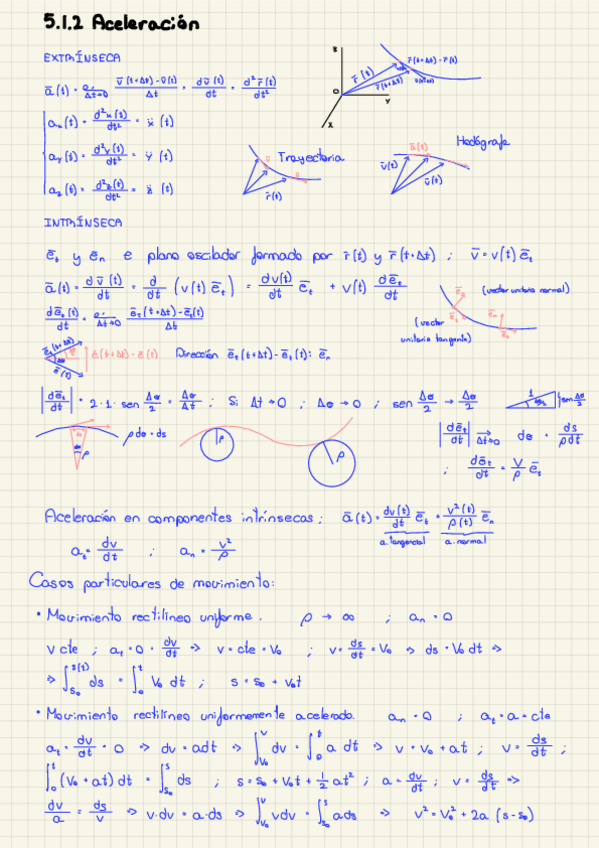 5.1.2 Aceleración
EXTRÍNSECA
z
r̄(t)
r̄(t+Δt)
r̄(t+Δt) - r̄(t)
O
y
x
ā(t) = lim Δt→0 (v̄(t+Δt) - v̄(t))/Δt = dv̄(t)/dt = d²r̄(t)/dt²
aₓ(t) = d²x(t)/dt² = ẍ (t)
a_y(t) = d²y(t)/dt² = ÿ (t)
a_z(t) = d²z(t)/dt² = z̈ (t)
Trayectoria
r̄(t)
Hodógrafa
ā(t)
v̄(t)
v̄(t)
INTRÍNSECA
ē_t y ē_n e plano oscilador formado por r̄(t) y r̄(t+Δt) ; v̄ = v(t) ē_t
ā(t) = dv̄(t)/dt = d/dt (v(t) ē_t) = dv(t)/dt ē_t + v(t) dē_t/dt
dē_t(t)/dt = lim Δt→0 (ē_t(t+Δt) - ē_t(t))/Δt
ē_t
(vector unitario normal)
ē_n
(vector
unitario tangente)
ē_t(t+Δt)
ē(t)
ē(t+Δt) - ē(t)
Dirección ē_t(t+Δt) - ē_t(t): ē_n
|dē_t/dt| = 2·1·sen Δθ/2 = Δθ/Δt ; Si Δt → 0 ; Δθ → 0 ; sen Δθ/2 → Δθ/2
1
sen Δθ/2
ρ
ρ dθ = ds
ρ
ρ
|dē_t/dt| →Δt→0 dθ = ds/ρdt
; dē_t/dt = v/ρ ē_t
Aceleración en componentes intrínsecas: ā(t) = dv(t)/dt ē_t + v²(t)/ρ(t) ē_n
a. tangencial a. normal
a_t = dv/dt ; a_n = v²/ρ
Casos particulares de movimiento:
• Movimiento rectilíneo uniforme. ρ → ∞ ; a_n = 0
v cte ; a_t = 0 = dv/dt => v = cte = v₀ ; v = ds/dt = v₀ => ds = v₀ dt =>
=> ∫_{s₀}^{s(t)} ds = ∫_0^t v₀ dt ; s = s₀ + v₀t
• Movimiento rectilíneo uniformemente acelerado. a_n = 0 ; a_t = a = cte
a_t = dv/dt = 0 => dv = adt => ∫_{v₀}^v dv = ∫_0^t a dt => v = v₀ + at ; v = ds/dt ;
∫_0^t (v₀ + at) dt = ∫_{s₀}^s ds ; s = s₀ + v₀t + 1/2 at² ; a = dv/dt ; v = ds/dt =>
dv/a = ds/v => v·dv = a·ds => ∫_{v₀}^v vdv = ∫_{s₀}^s ads => v² = v₀² + 2a (s-s₀)